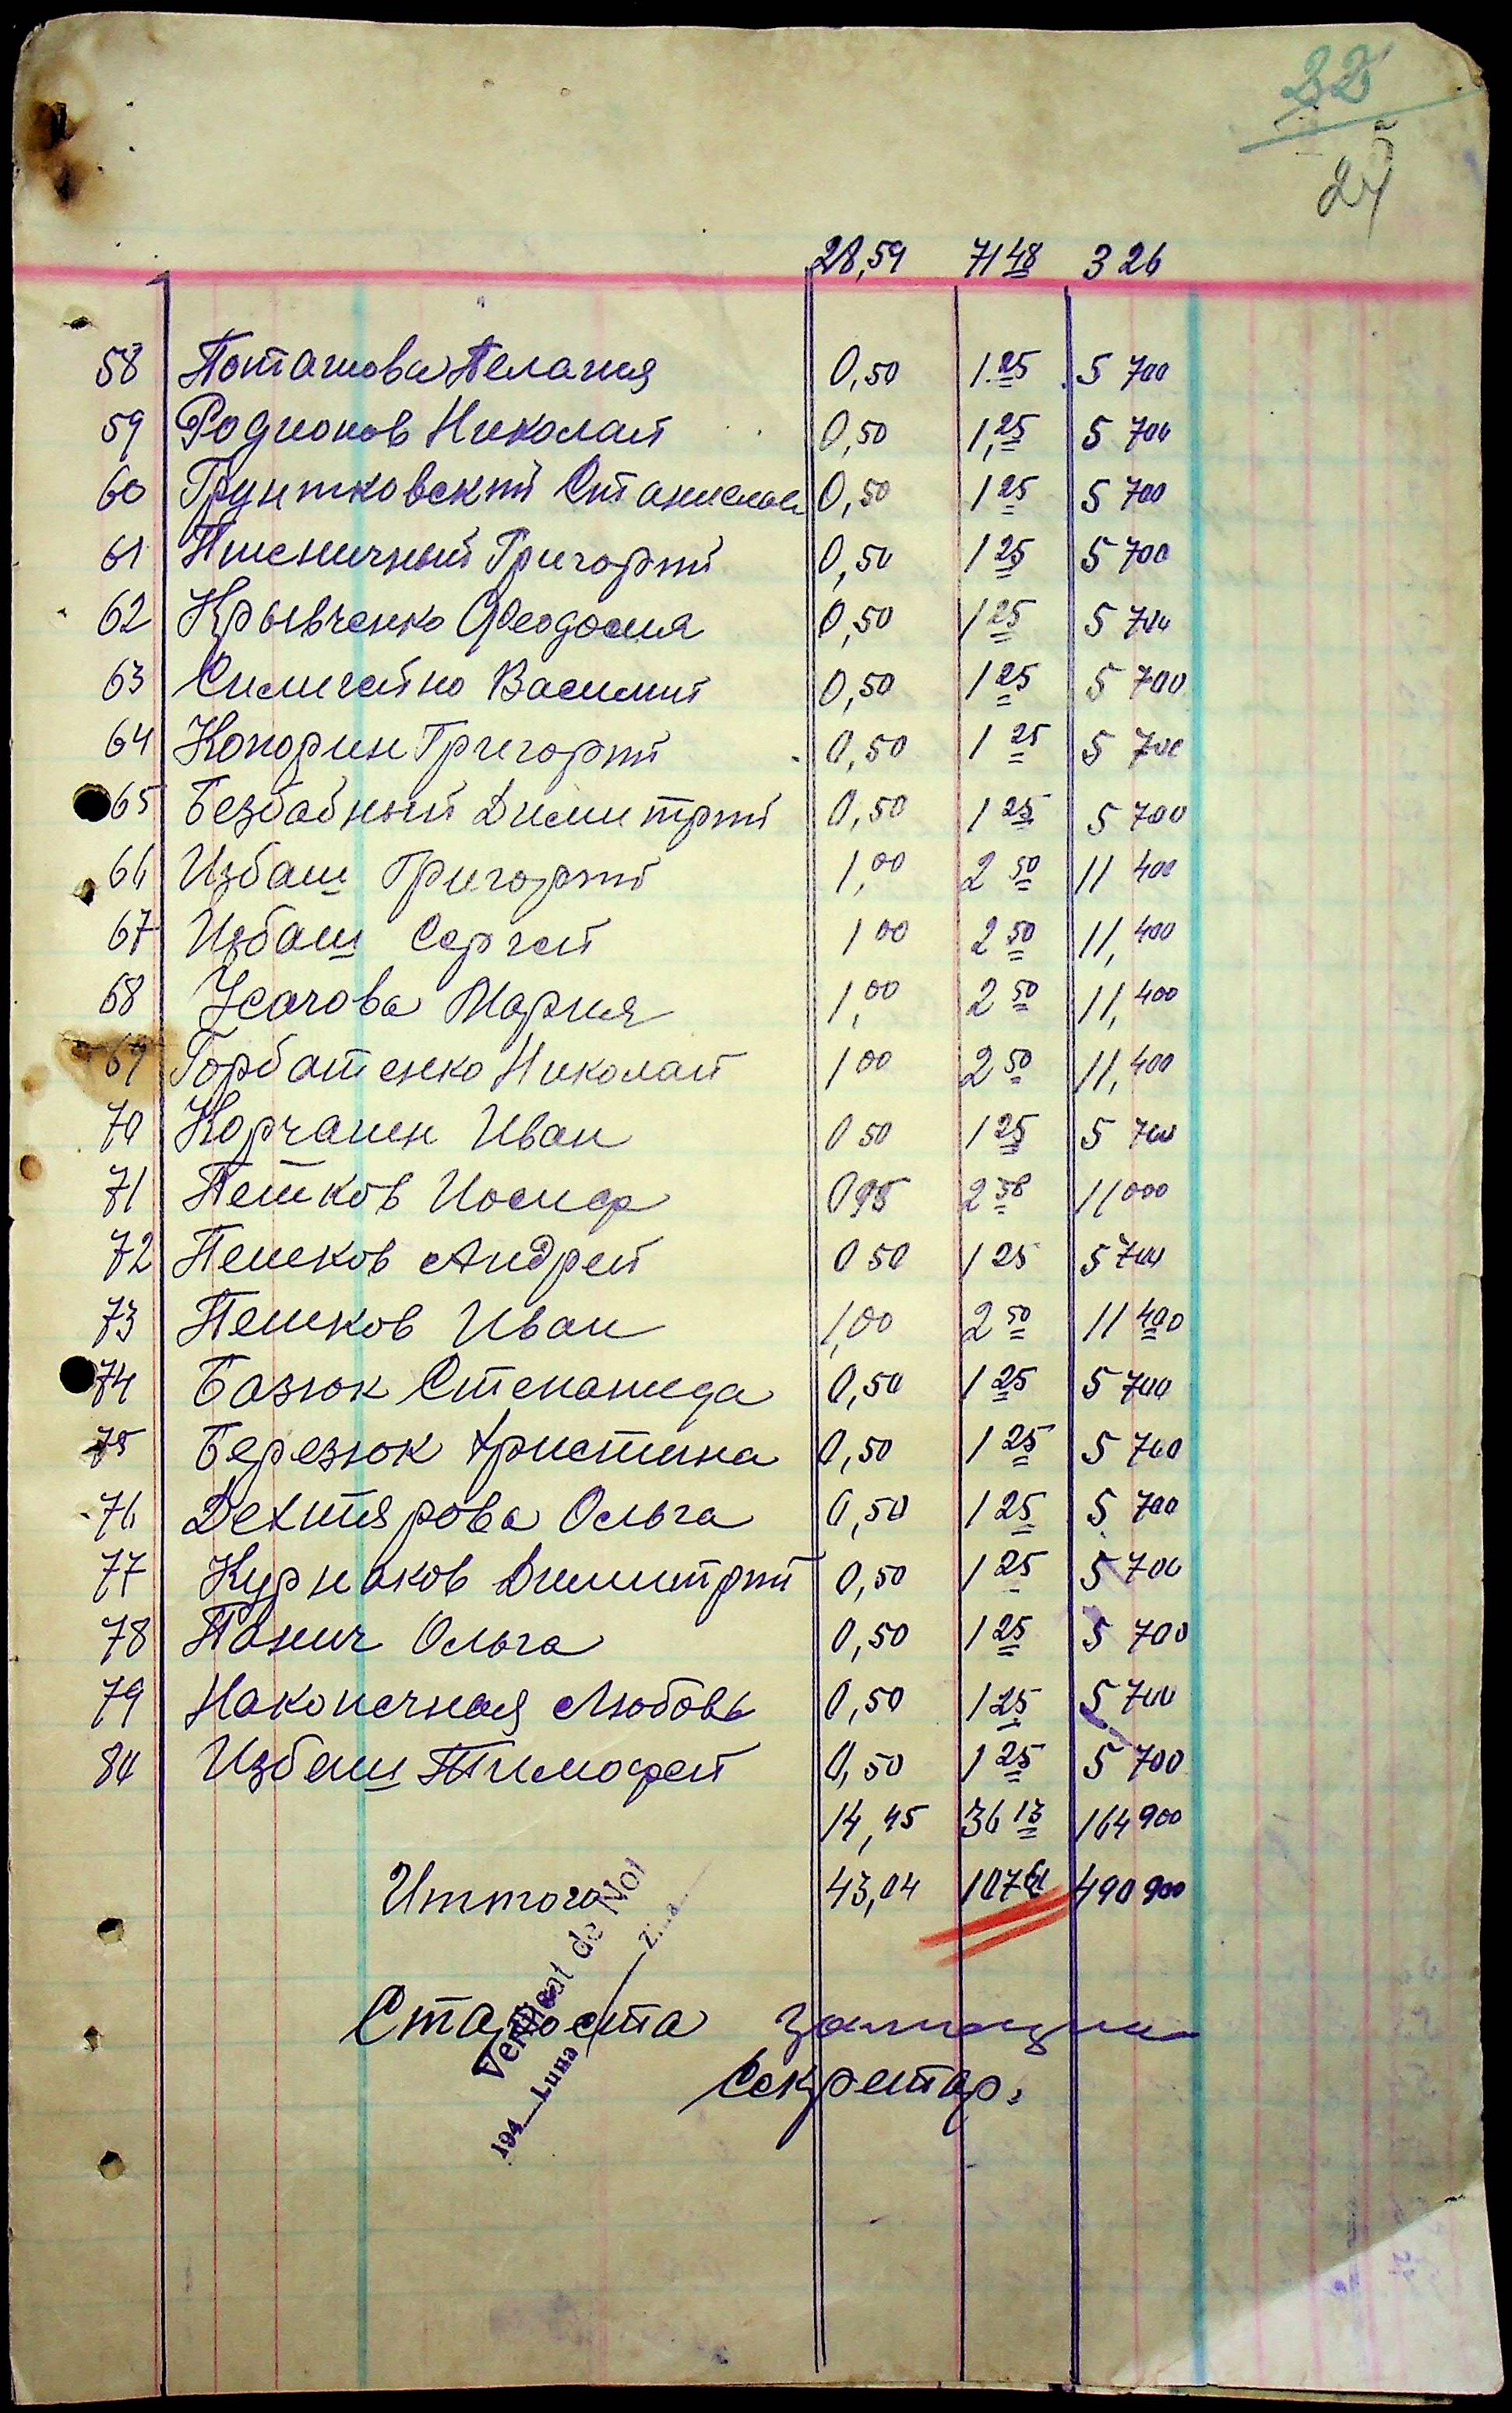 22
25
24
28,59 71 48 3 26
58 Поташова Пелагия 0,50 1.25 5 700
59 Родионов Николай 0,50 1,25 5 700
60 Грунтковский Станислав 0,50 1 25 5 700
61 Пшеничный Григорий 0,50 1 25 5 700
62 Крывченко Феодосия 0,50 1 25 5 700
63 Силигейно Василий 0,50 1 25 5 700
64 Копорин Григорий 0,50 1 25 5 700
65 Безбабный Димитрий 0,50 1 25 5 700
66 Избаш Григорий 1,00 2 50 11 400
67 Избаш Сергей 1 00 2 50 11,400
68 Усачова Мария 1,00 2 50 11,400
69 Горбатенко Николай 1 00 2 50 11,400
70 Корчагин Иван 0 50 1 25 5 700
71 Пешков Иосиф 0 95 2 38 11 000
72 Пешков Андрей 0 50 1 25 5 700
73 Пешков Иван 1,00 2 50 11 400
74 Базюк Степанида 0,50 1 25 5 700
75 Березюк Христина 0,50 1 25 5 700
76 Дехтярова Ольга 0,50 1 25 5 700
77 Курнаков Димитрий 0,50 1 25 5 700
78 Панич Ольга 0,50 1 25 5 700
79 Наконечная Любовь 0,50 1 25 5 700
80 Избаш Тимофей 0,50 1 25 5 700
14,45 36 13 164 900
Иттого 43,04 107 61 490 900
Verificat de Noi
194__ Luna ___ Ziua
Староста
Секретар.